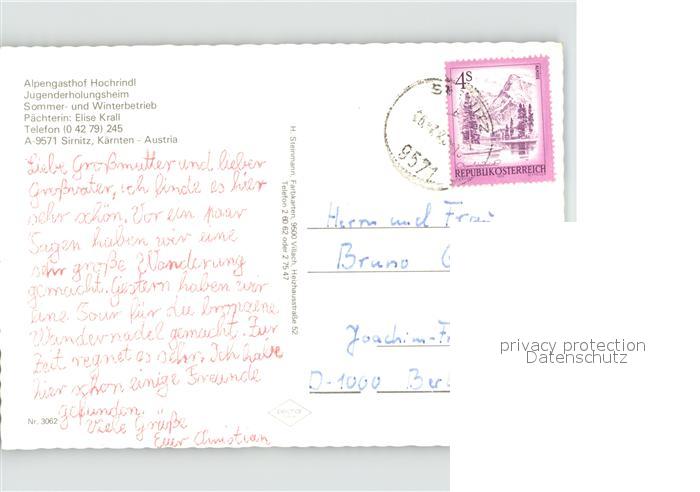 Alpengasthof Hochrindl
Jugenderholungsheim
Sommer- und Winterbetrieb
Pächterin: Elise Krall
Telefon (0 42 79) 245
A-9571 Sirnitz, Kärnten - Austria
Liebe Großmutter und lieber
Großvater, ich finde es hier
sehr schön. Vor ein paar
Tagen haben wir eine
sehr große Wanderung
gemacht. Gestern haben wir
eine Tour für die bronzene
Wandernadel gemacht. Zur
Zeit regnet es sehr. Ich habe
hier schon einige Freunde
gefunden.
Viele Grüße
Euer Christian
Nr. 3062
H. Steinmann, Farbkarten, 9500 Villach, Heizhausstraße 52
Telefon 2 60 62 oder 2 75 47
4S
REPUBLIK ÖSTERREICH
9571
Herrn und Frau
Bruno
Joachim-Fr
D-1000 Berl
privacy protection
Datenschutz